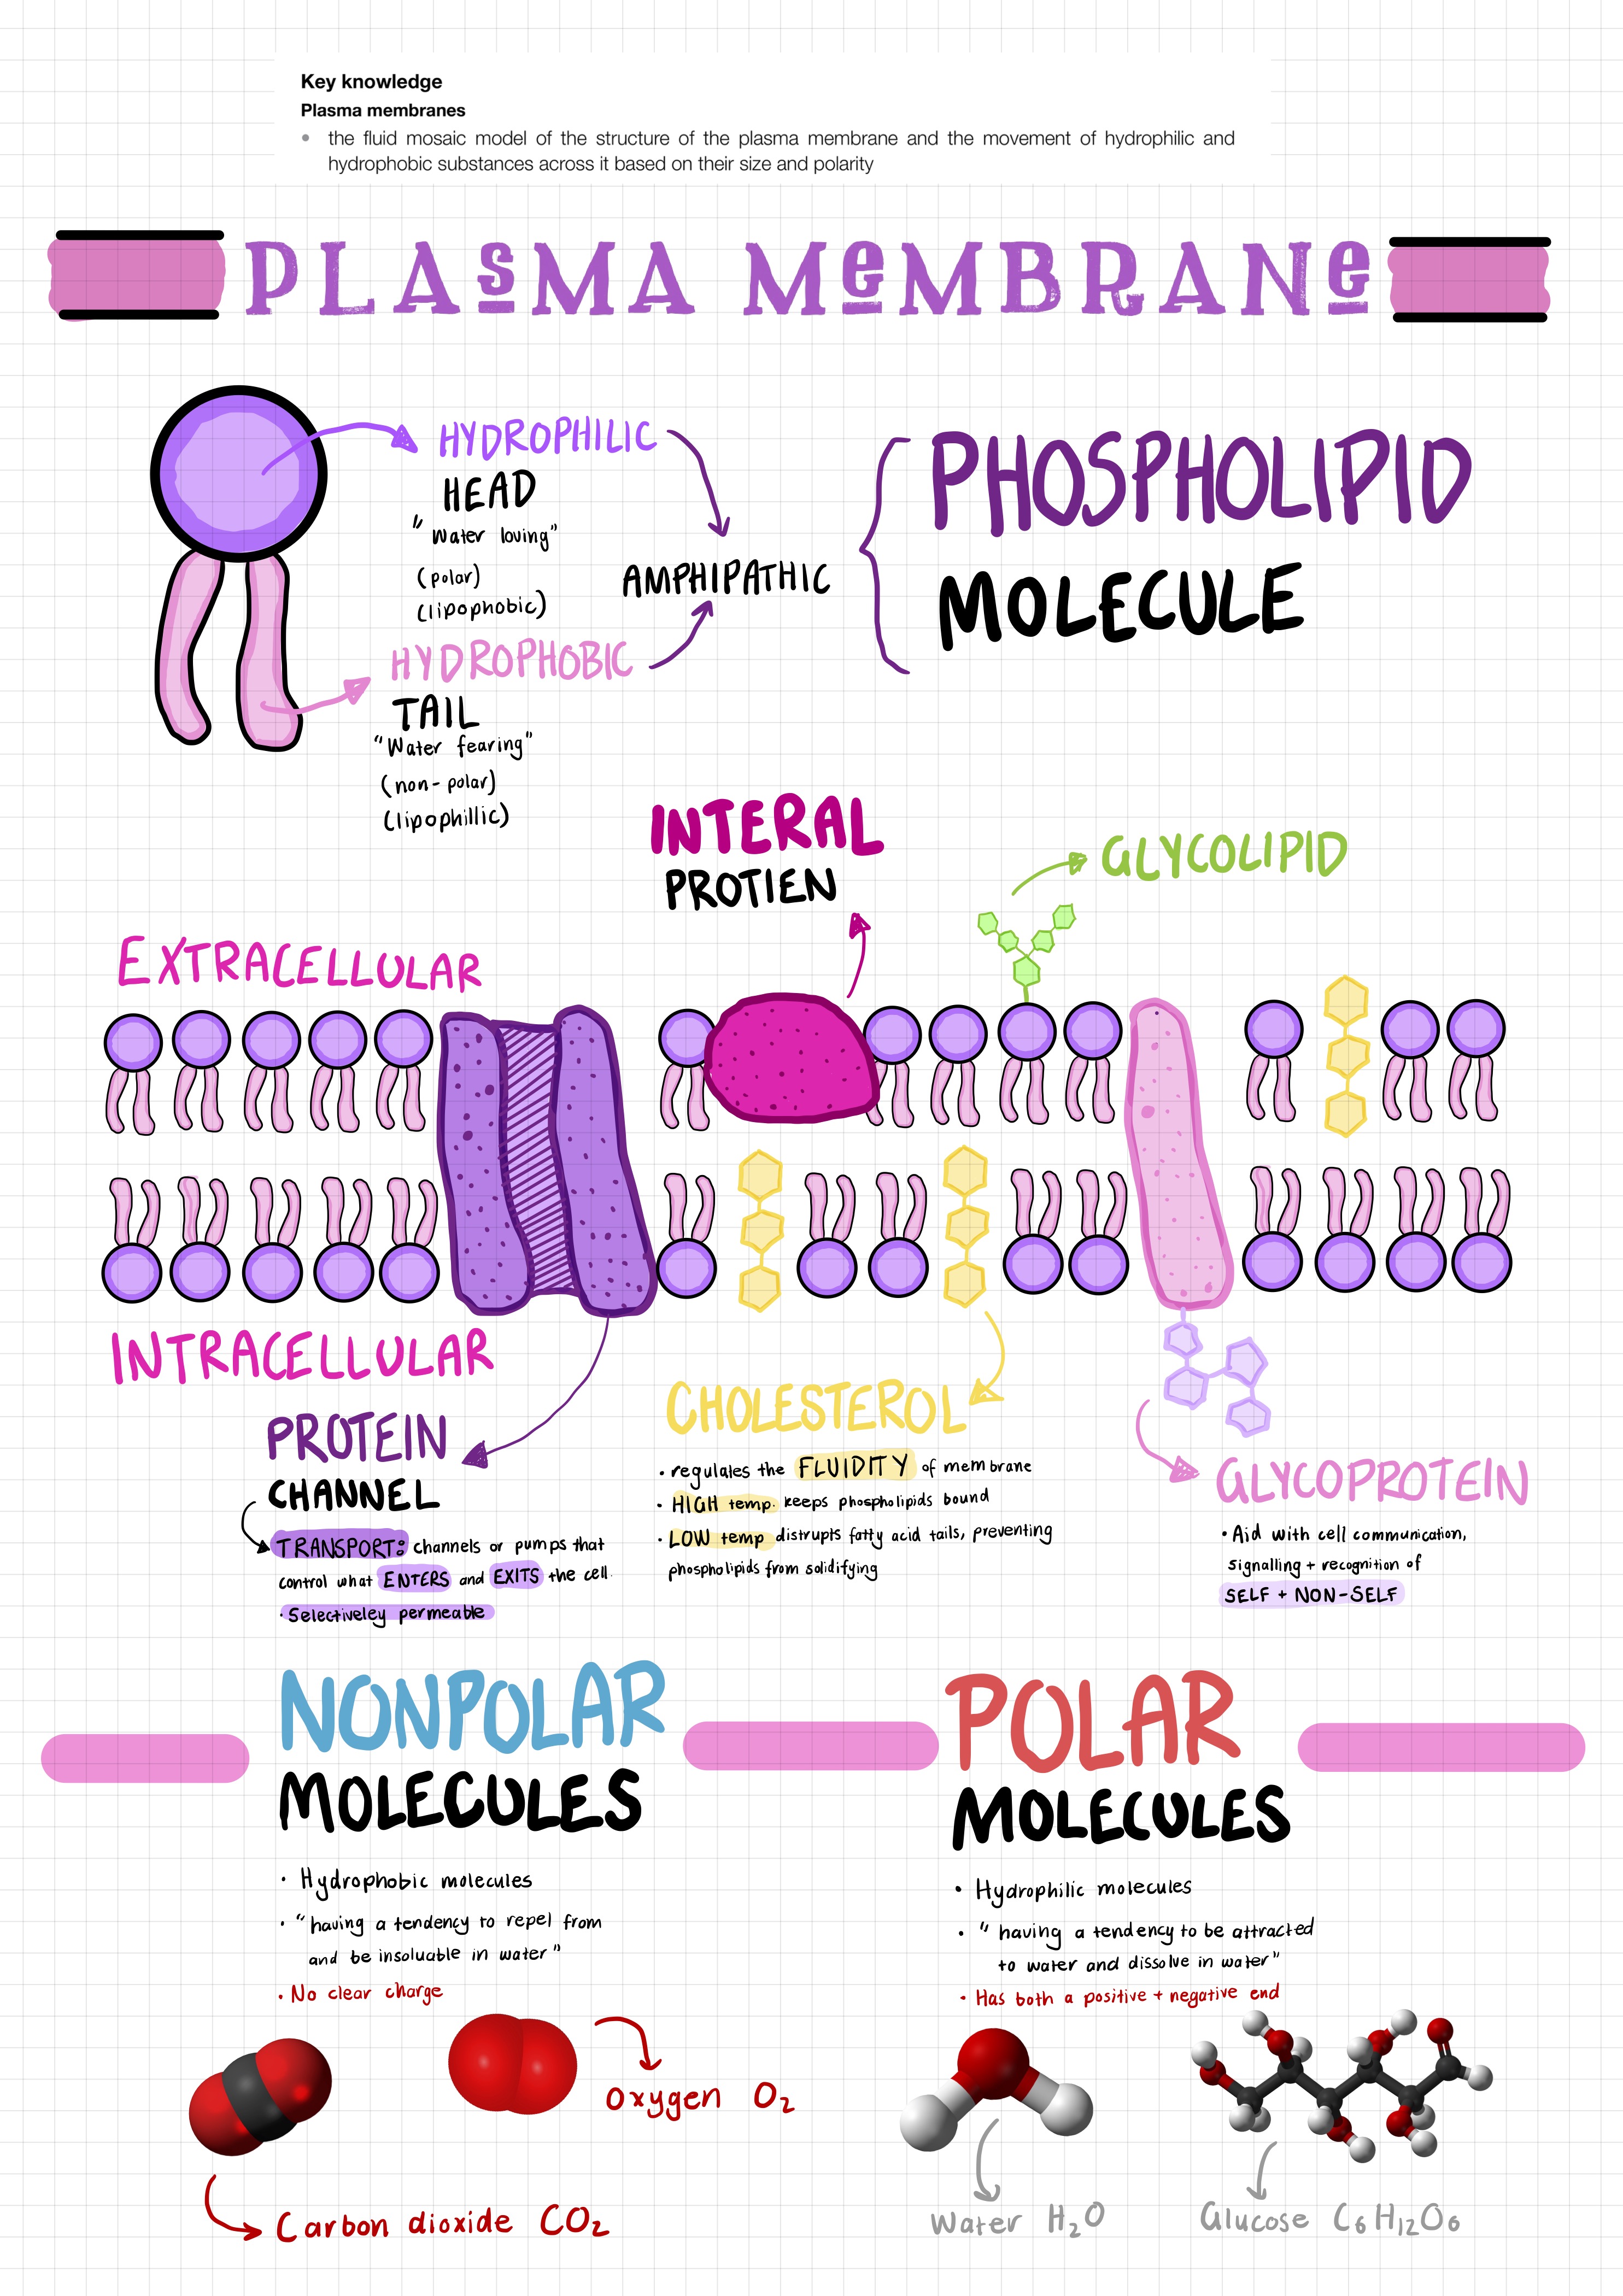 Key knowledge
Plasma membranes
• the fluid mosaic model of the structure of the plasma membrane and the movement of hydrophilic and
hydrophobic substances across it based on their size and polarity
PLASMA MEMBRANE
HYDROPHILIC
HEAD
"Water loving"
(polar)
(lipophobic)
HYDROPHOBIC
TAIL
"Water fearing"
(non-polar)
(lipophillic)
AMPHIPATHIC
PHOSPHOLIPID
MOLECULE
INTERAL
PROTIEN
GLYCOLIPID
EXTRACELLULAR
INTRACELLULAR
PROTEIN
CHANNEL
TRANSPORT: channels or pumps that
control what ENTERS and EXITS the cell.
• Selectiveley permeable
CHOLESTEROL
• regulates the FLUIDITY of membrane
• HIGH temp. keeps phospholipids bound
• LOW temp distrupts fatty acid tails, preventing
phospholipids from solidifying
GLYCOPROTEIN
• Aid with cell communication,
signalling + recognition of
SELF + NON-SELF
NONPOLAR
MOLECULES
• Hydrophobic molecules
• "having a tendency to repel from
and be insoluable in water"
• No clear charge
Oxygen O₂
Carbon dioxide CO₂
POLAR
MOLECULES
• Hydrophilic molecules
• "having a tendency to be attracted
to water and dissolve in water"
• Has both a positive + negative end
Water H₂O
Glucose C₆H₁₂O₆